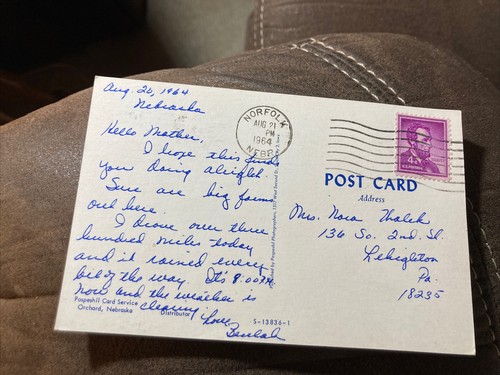 Aug. 20, 1964
Nebraska
Hello Mother,
I hope this finds
you doing alright.
Sure are big farms
out here.
I drove over three
hundred miles today
and it rained every
bit of the way. It's 8:00 P.M.
now and the weather is
clearing.
Love,
Beulah
Pospeshil Card Service
Orchard, Nebraska
Distributor
S-13836-1
NORFOLK
AUG 21
PM
1964
NEBR.
4¢
POST CARD
Address
Mrs. Nora Thalek
136 So. 2nd. St.
Lehighton
Pa.
18235